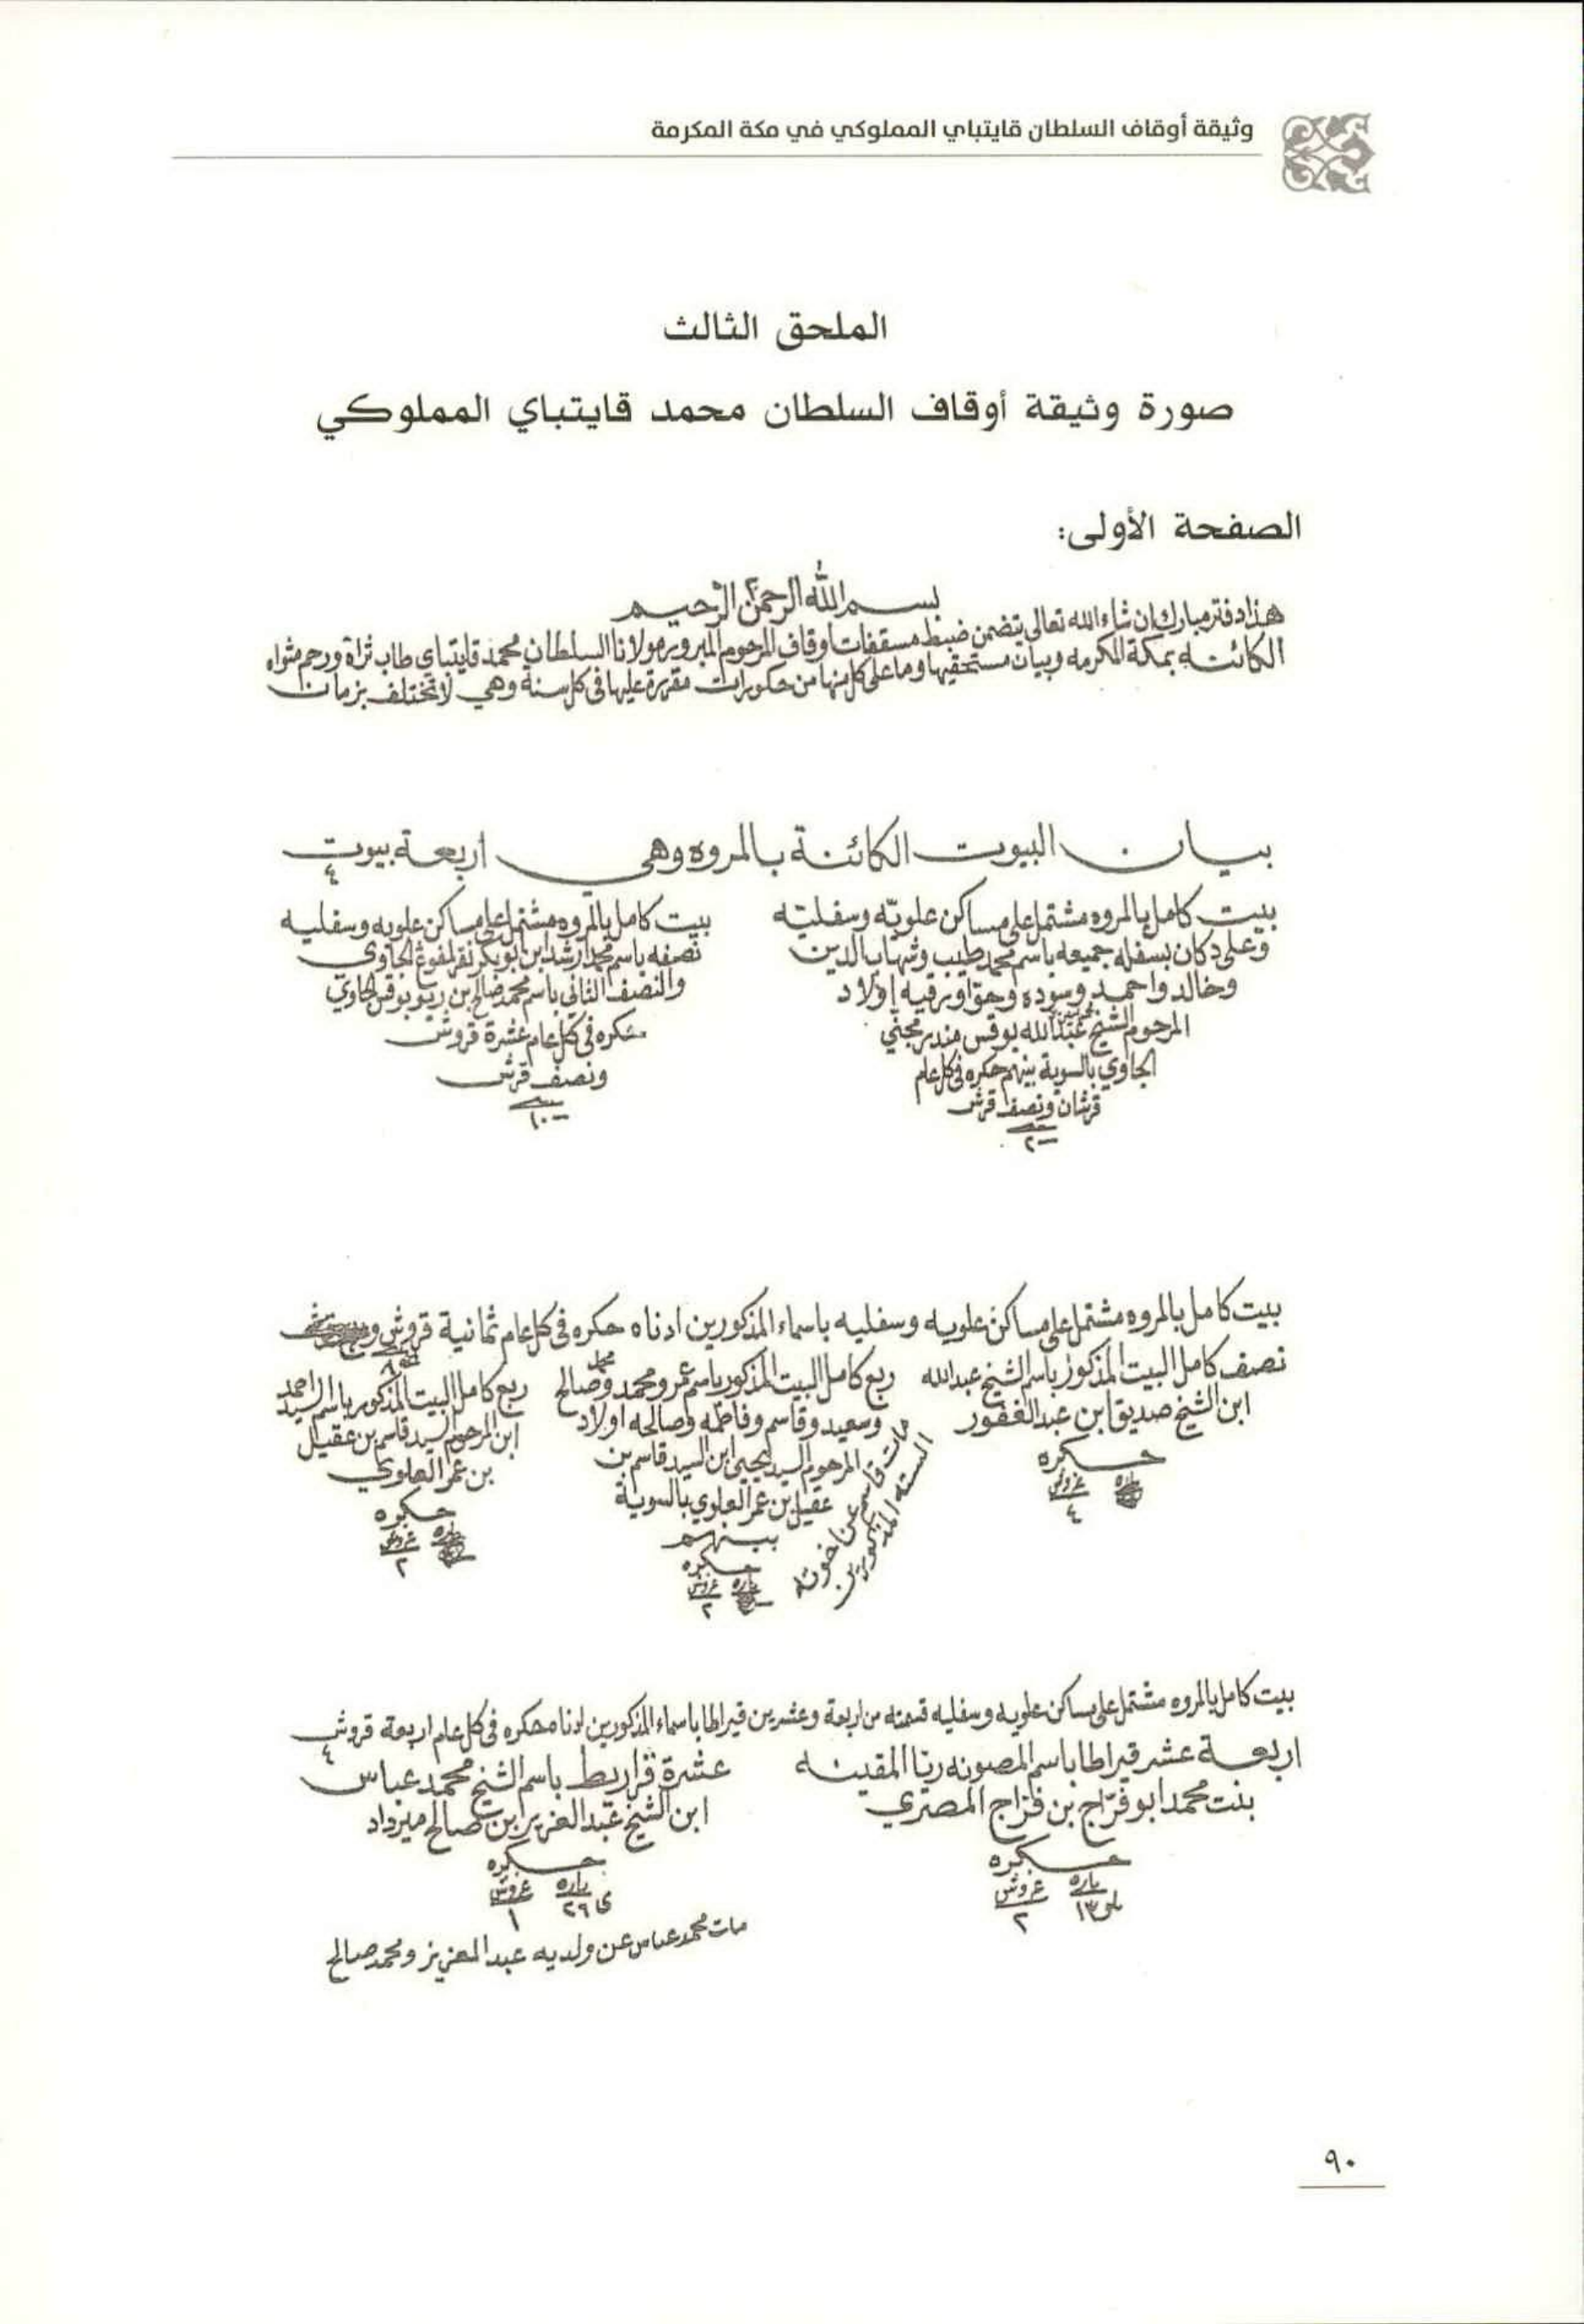 وثيقة أوقاف السلطان قايتباي المملوكي في مكة المكرمة
الملحق الثالث
صورة وثيقة أوقاف السلطان محمد قايتباي المملوكي
الصفحة الأولى:
بسم الله الرحمن الرحيم
هذا دفتر مبارك إن شاء الله تعالى يتضمن ضبط مسقفات اوقاف المرحوم المبرور مولانا السلطان محمد قايتباي طاب ثراه ورحم مثواه
الكائنه بمكة المكرمه وبيان مستحقيها وما على كل منها من حكورات مقررة عليها في كل سنة وهي لا تختلف بزمان
بيان البيوت الكائنة بالمروه وهي اربعة بيوت
٤
بيت كامل بالمروه مشتمل على مساكن علويّه وسفليّه
وعلى دكان بسفله جميعه باسم محمد طيب وشهاب الدين
وخالد واحمد وسوده وحوّا ورقيه اولاد
المرحوم الشيخ عبد الله بوقس
الجاوي بالسوية بينهم حكره في كل عام
قرشان ونصف قرش
٢
بيت كامل بالمروه مشتمل على مساكن علويه وسفليه
نصفه باسم محمد ارشد ابن ابو بكر الجاوي
والنصف الثاني باسم محمد صالح بن بوقس الجاوي
حكره في كل عام عشرة قروش
ونصف قرش
١٠
بيت كامل بالمروه مشتمل على مساكن علويه وسفليه باسماء المذكورين ادناه حكره في كل عام ثمانية قروش
٨
نصف كامل البيت المذكور باسم الشيخ عبد الله
ابن الشيخ صديق ابن عبد الغفور
حكره
باره غروش
٤
ربع كامل البيت المذكور باسم عمر ومحمد وصالح
محمد
وسعيد وقاسم وفاطمه وصالحه اولاد
المرحوم السيد يحيى ابن السيد قاسم بن
عقيل بن عمر العلوي بالسوية
بينهم
حكره
باره غروش
٢
مات قاسم عن اخوته
السته المذكورين
ربع كامل البيت المذكور باسم السيد احمد
ابن المرحوم السيد قاسم بن عقيل
بن عمر العلوي
حكره
باره غروش
٢
بيت كامل بالمروه مشتمل على مساكن علويه وسفليه قسمته من اربعة وعشرين قيراطا باسماء المذكورين ادناه حكره في كل عام اربعة قروش
٤
اربعة عشر قيراطا باسم المصونه
بنت محمد ابو فرّاج بن فرّاج المصري
حكره
باره غروش
١٣ ٢
عشرة قراريط باسم الشيخ محمد عباس
ابن الشيخ عبد العزيز ابن صالح ميرداد
حكره
باره غروش
٢٦ ١
مات محمد عباس عن ولديه عبد العزيز ومحمد صالح
٩٠